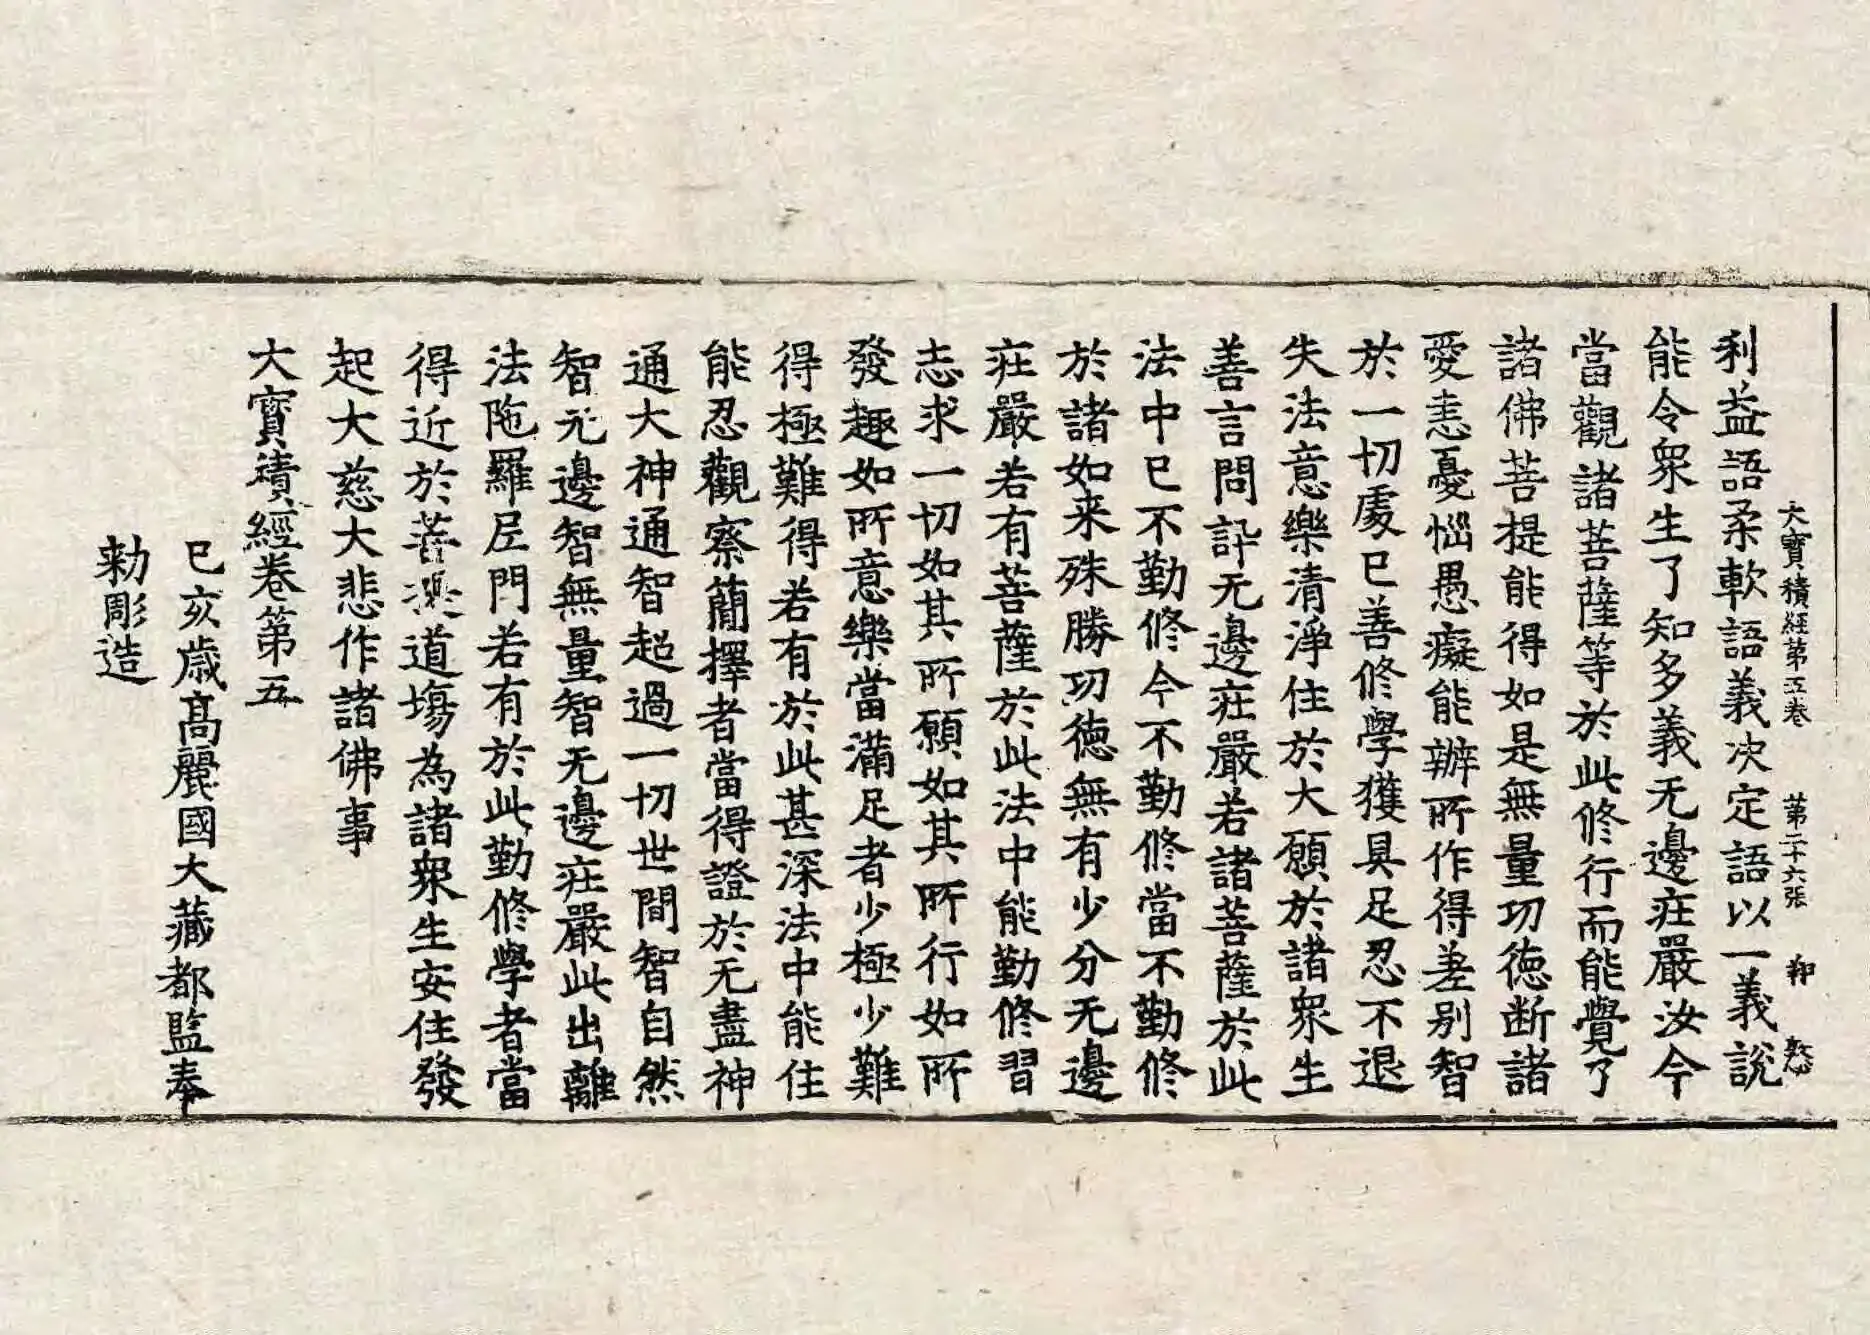 大寶積經第五卷　第二十六張
利益語柔軟語義決定語以一義說
能令衆生了知多義无邊莊嚴汝今
當觀諸菩薩等於此修行而能覺了
諸佛菩提能得如是無量功德断諸
愛恚憂惱愚癡能辦所作得差別智
於一切處已善修學獲具足忍不退
失法意樂清淨住於大願於諸衆生
善言問訊无邊莊嚴若諸菩薩於此
法中已不勤修今不勤修當不勤修
於諸如来殊勝功德無有少分无邊
莊嚴若有菩薩於此法中能勤修習
志求一切如其所願如其所行如所
發趣如所意樂當滿足者少極少難
得極難得若有於此甚深法中能住
能忍觀察簡擇者當得證於无盡神
通大神通智超過一切世間智自然
智无邊智無量智无邊莊嚴此出離
法陁羅尼門若有於此勤修學者當
得近於菩提道場為諸衆生安住發
起大慈大悲作諸佛事
大寶積經卷第五
已亥歳髙麗國大藏都監奉
勑彫造